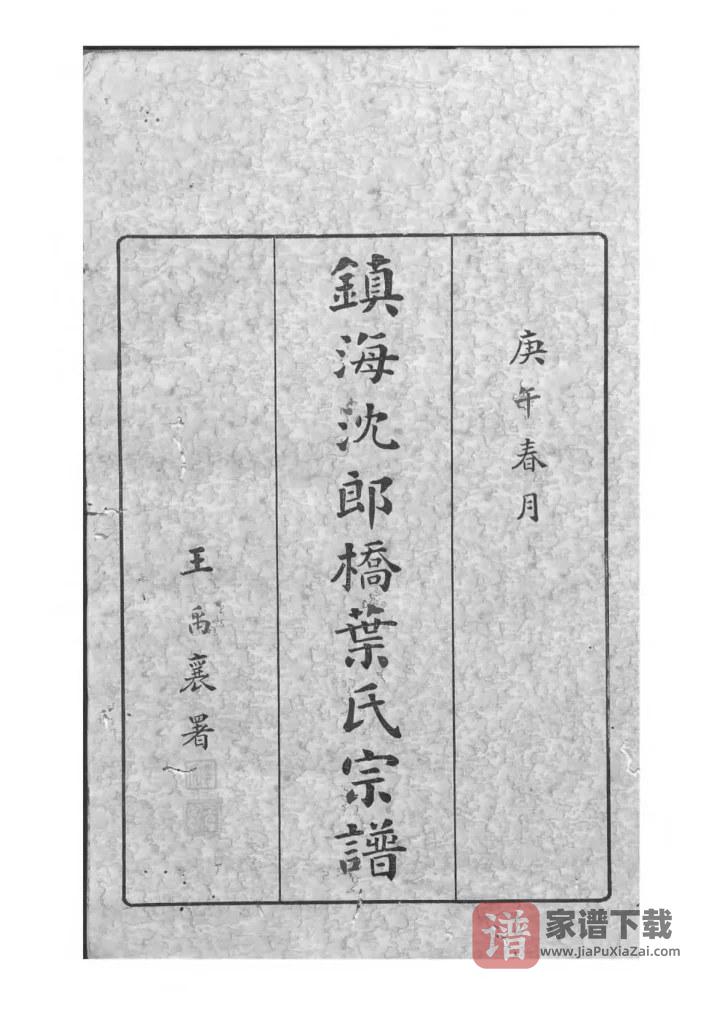 庚午春月
鎮海沈郎橋葉氏宗譜
王禹襄署
谱
家谱下载
www.JiaPuXiaZai.com